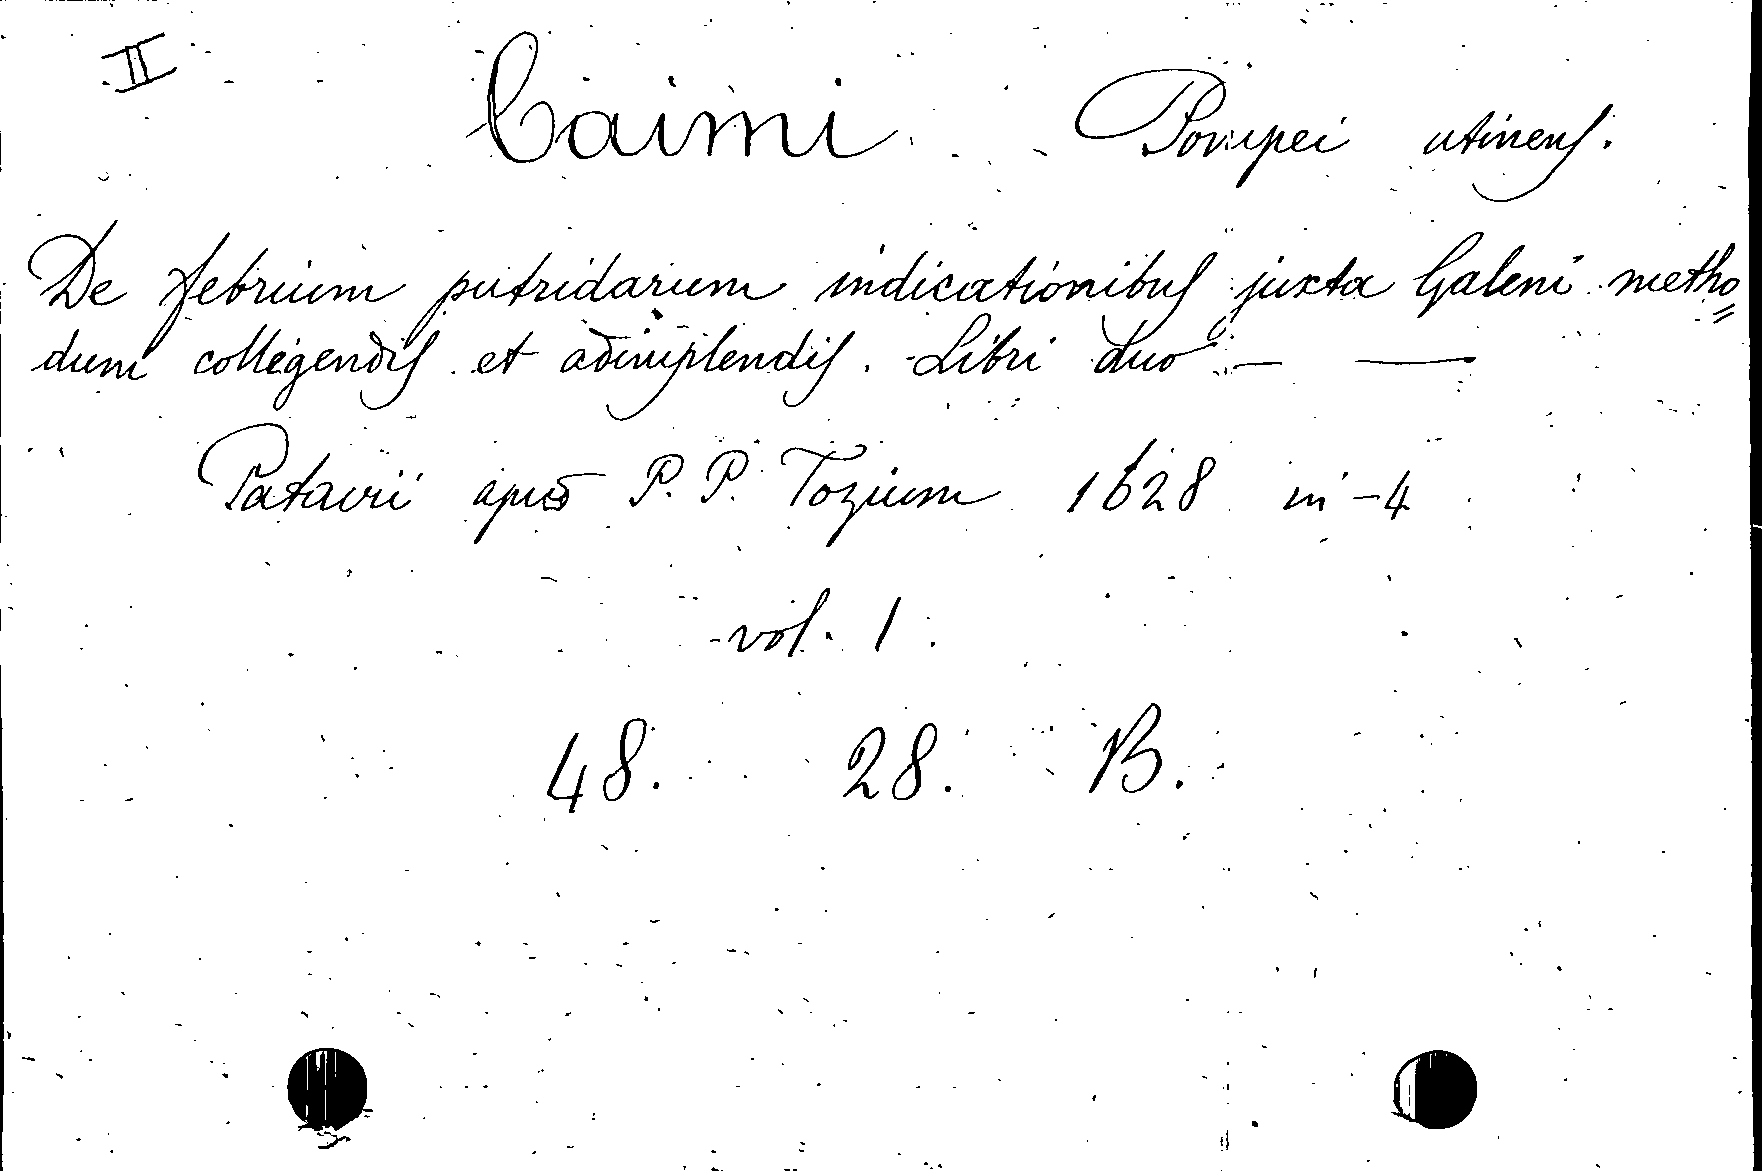 II
Caimi Pompei utinens.
De febrium putridarum indicationibus juxta Galeni metho=
dum collegendis et adimplendis. Libri duo — —
Patavii apud P. P. Tozium 1628 in-4
vol. 1.
48. 28. B.